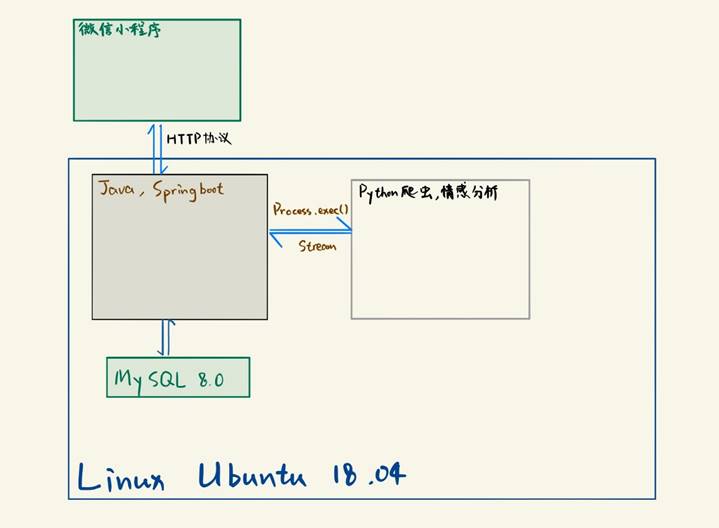 微信小程序
HTTP协议
Java, Springboot
Process.exec()
Stream
Python爬虫,情感分析
MySQL 8.0
Linux Ubuntu 18.04